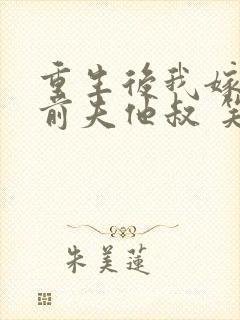 重生後我嫁
前夫他叔
朱美蓮